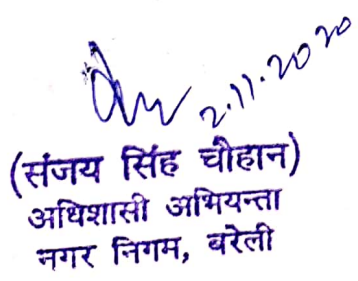 2.11.2020
(संजय सिंह चौहान)
अधिशासी अभियन्ता
नगर निगम, बरेली